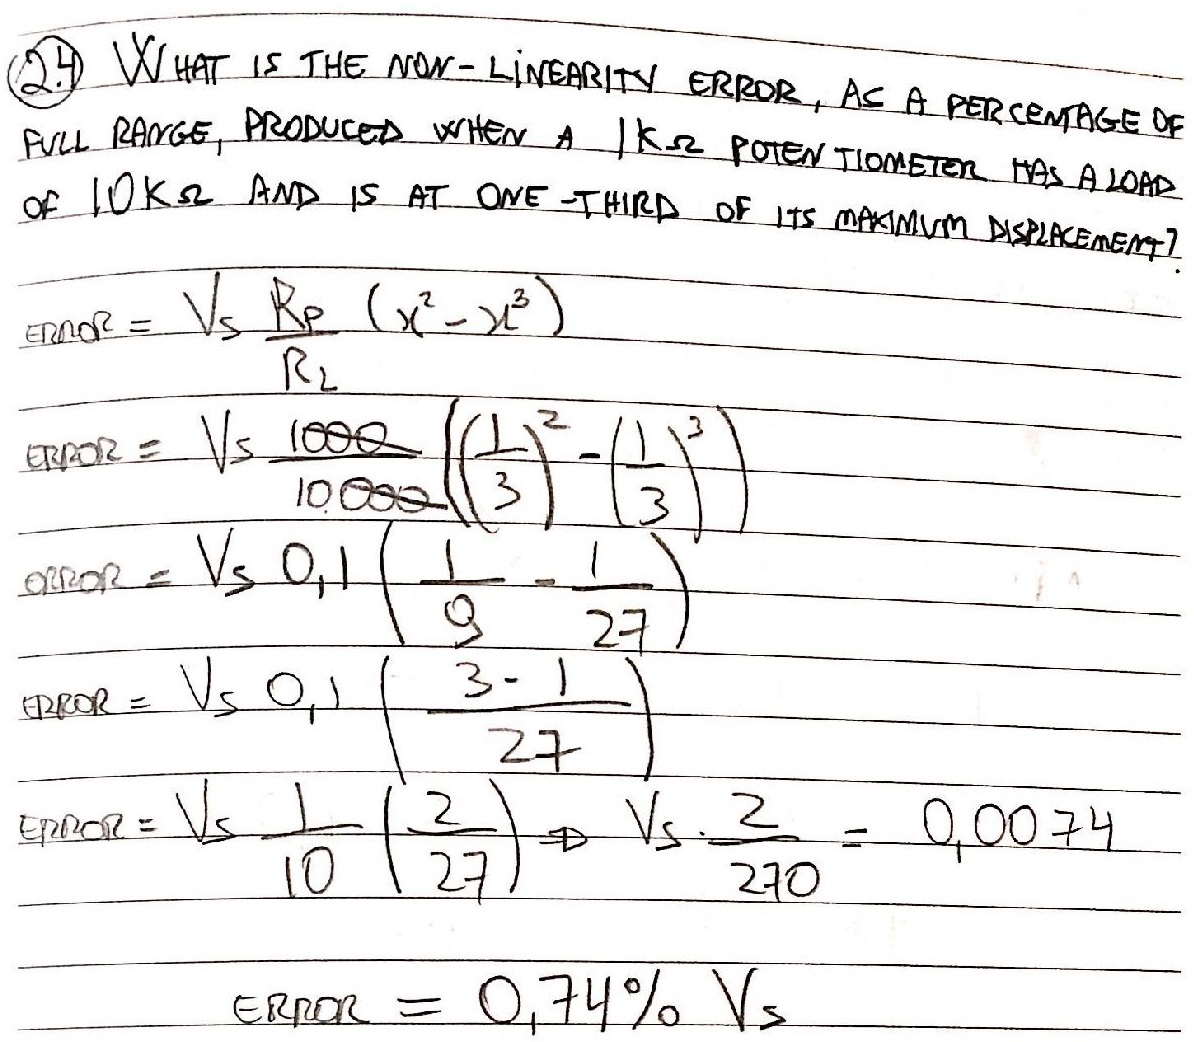 2.4 WHAT IS THE NON-LINEARITY ERROR, AS A PERCENTAGE OF
FULL RANGE, PRODUCED WHEN A 1KΩ POTENTIOMETER HAS A LOAD
OF 10KΩ AND IS AT ONE-THIRD OF ITS MAXIMUM DISPLACEMENT?
ERROR = Vs Rp/RL (x² - x³)
ERROR = Vs 1000/10.000 ((1/3)² - (1/3)³)
ERROR = Vs 0,1 (1/9 - 1/27)
ERROR = Vs 0,1 (3-1/27)
ERROR = Vs 1/10 (2/27) ⇒ Vs. 2/270 = 0,0074
ERROR = 0,74% Vs